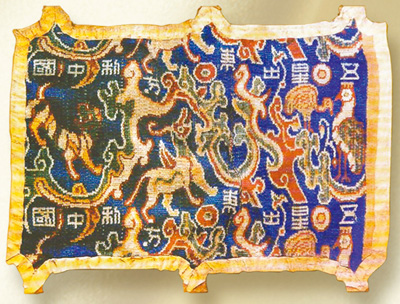 五星出東方利中國
五星出東方利中國